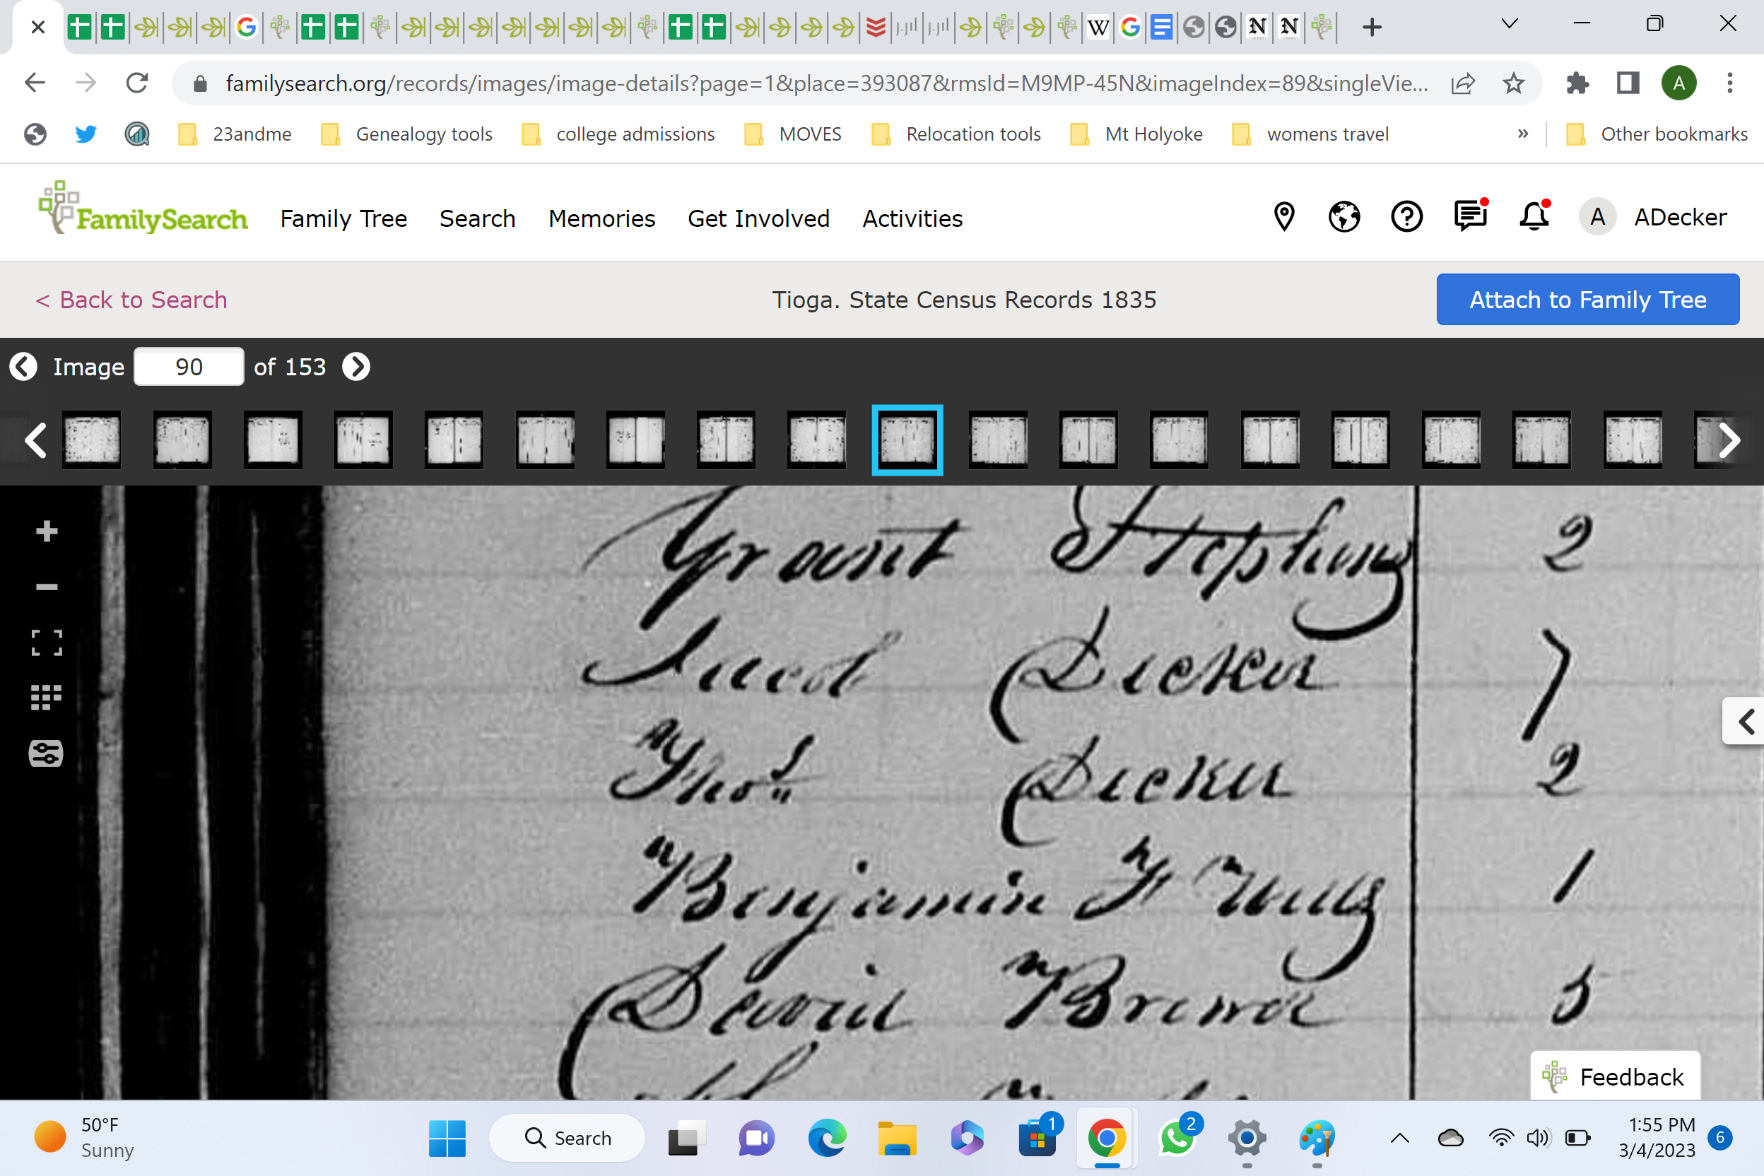 familysearch.org/records/images/image-details?page=1&place=393087&rmsId=M9MP-45N&imageIndex=89&singleVie...
A
23andme Genealogy tools college admissions MOVES Relocation tools Mt Holyoke womens travel » Other bookmarks
FamilySearch Family Tree Search Memories Get Involved Activities A ADecker
< Back to Search Tioga. State Census Records 1835 Attach to Family Tree
Image 90 of 153
Grant Stephens 2
Jacob Decker 7
Thos. Decker 2
Benjamin F 1
David Brewer 5
Feedback
50°F
Sunny
Search
1
2
1:55 PM
3/4/2023
6